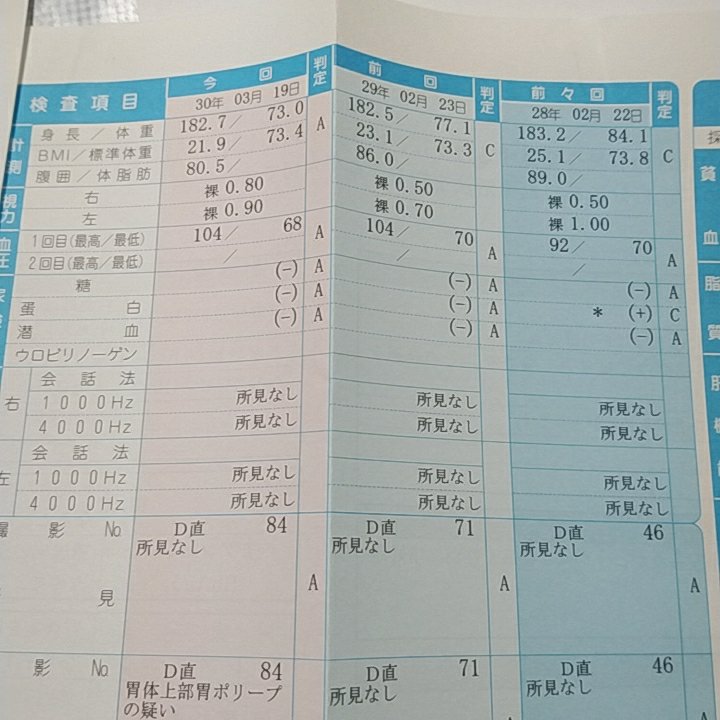 検査項目 今回 判定 前回 判定 前々回 判定
30年 03月 19日 29年 02月 23日 28年 02月 22日
身長／体重 182.7／ 73.0 182.5／ 77.1 183.2／ 84.1
BMI／標準体重 21.9／ 73.4 A 23.1／ 73.3 C 25.1／ 73.8 C
腹囲／体脂肪 80.5／ 86.0／ 89.0／
計測
視力
右 裸 0.80 裸 0.50 裸 0.50
左 裸 0.90 裸 0.70 裸 1.00
血圧
1回目(最高／最低) 104／ 68 A 104／ 70 A 92／ 70 A
2回目(最高／最低) ／ ／ ／
糖 (−) A (−) A (−) A
蛋白 (−) A (−) A * (+) C
潜血 (−) A (−) A (−) A
ウロビリノーゲン
右
会話法
1000Hz 所見なし 所見なし 所見なし
4000Hz 所見なし 所見なし 所見なし
左
会話法
1000Hz 所見なし 所見なし 所見なし
4000Hz 所見なし 所見なし 所見なし
撮影 No. D直 84 D直 71 D直 46
所見なし 所見なし 所見なし
見 A A A
影 No. D直 84 D直 71 D直 46
胃体上部胃ポリープ 所見なし 所見なし
の疑い
貧
血
脂
質
肝